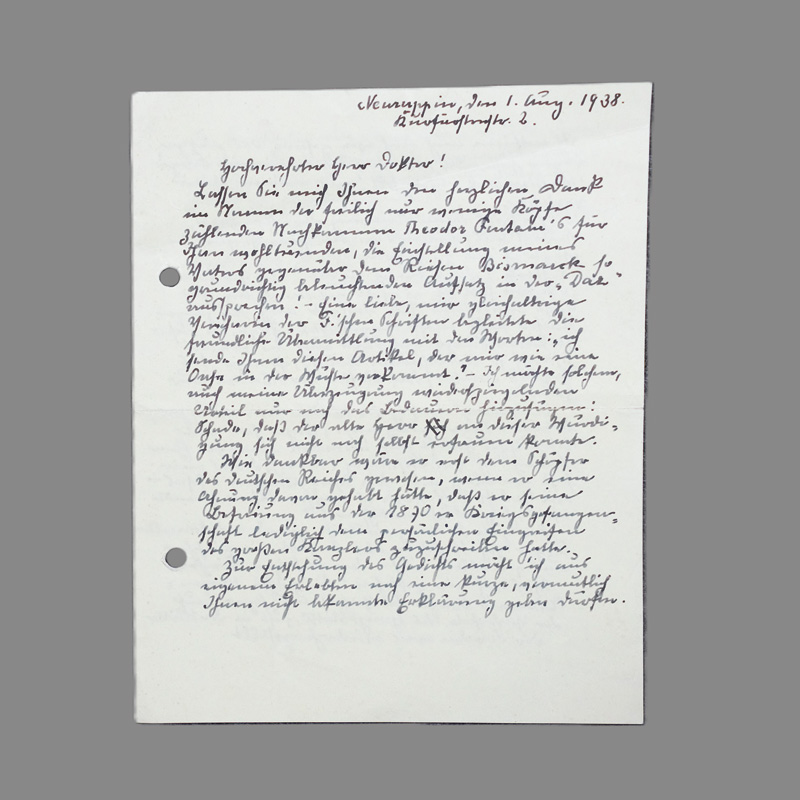 Neuruppin, den 1. Aug. 1938.
Kurfürstenstr. 2.
Hochverehrter Herr Doktor!
Lassen Sie mich Ihnen den herzlichen Dank
im Namen der freilich nur wenige Köpfe
zählenden Nachkommen Theodor Fontane's für
Ihren wohltuenden, die Einstellung meines
Vaters gegenüber dem Riesen Bismarck so
grundrichtig beleuchtenden Aufsatz in der „Daz"
aussprechen! – Eine liebe, mir gleichaltrige
Verehrerin der F.'schen Schriften begleitete die
freundliche Übermittlung mit den Worten: „ich
sende Ihnen diesen Artikel, der mir wie eine
Oase in der Wüste vorkommt! – Ich möchte solchem,
auch meine Überzeugung widerspiegelnden
Urteil nur noch das Bedauern hinzufügen:
Schade, daß der alte Herr an dieser Würdi-
gung sich nicht noch selbst erfreuen konnte.
Wie dankbar wäre er erst dem Schöpfer
des deutschen Reiches gewesen, wenn er eine
Ahnung davon gehabt hätte, daß er seine
Befreiung aus der 1870er Kriegsgefangen-
schaft lediglich dem persönlichen Eingreifen
des großen Kanzlers zuzuschreiben hatte.
Zur Entstehung des Gedichts möcht' ich aus
eigenem Erlebten noch eine kurze, vermutlich
Ihnen nicht bekannte Erklärung geben dürfen.